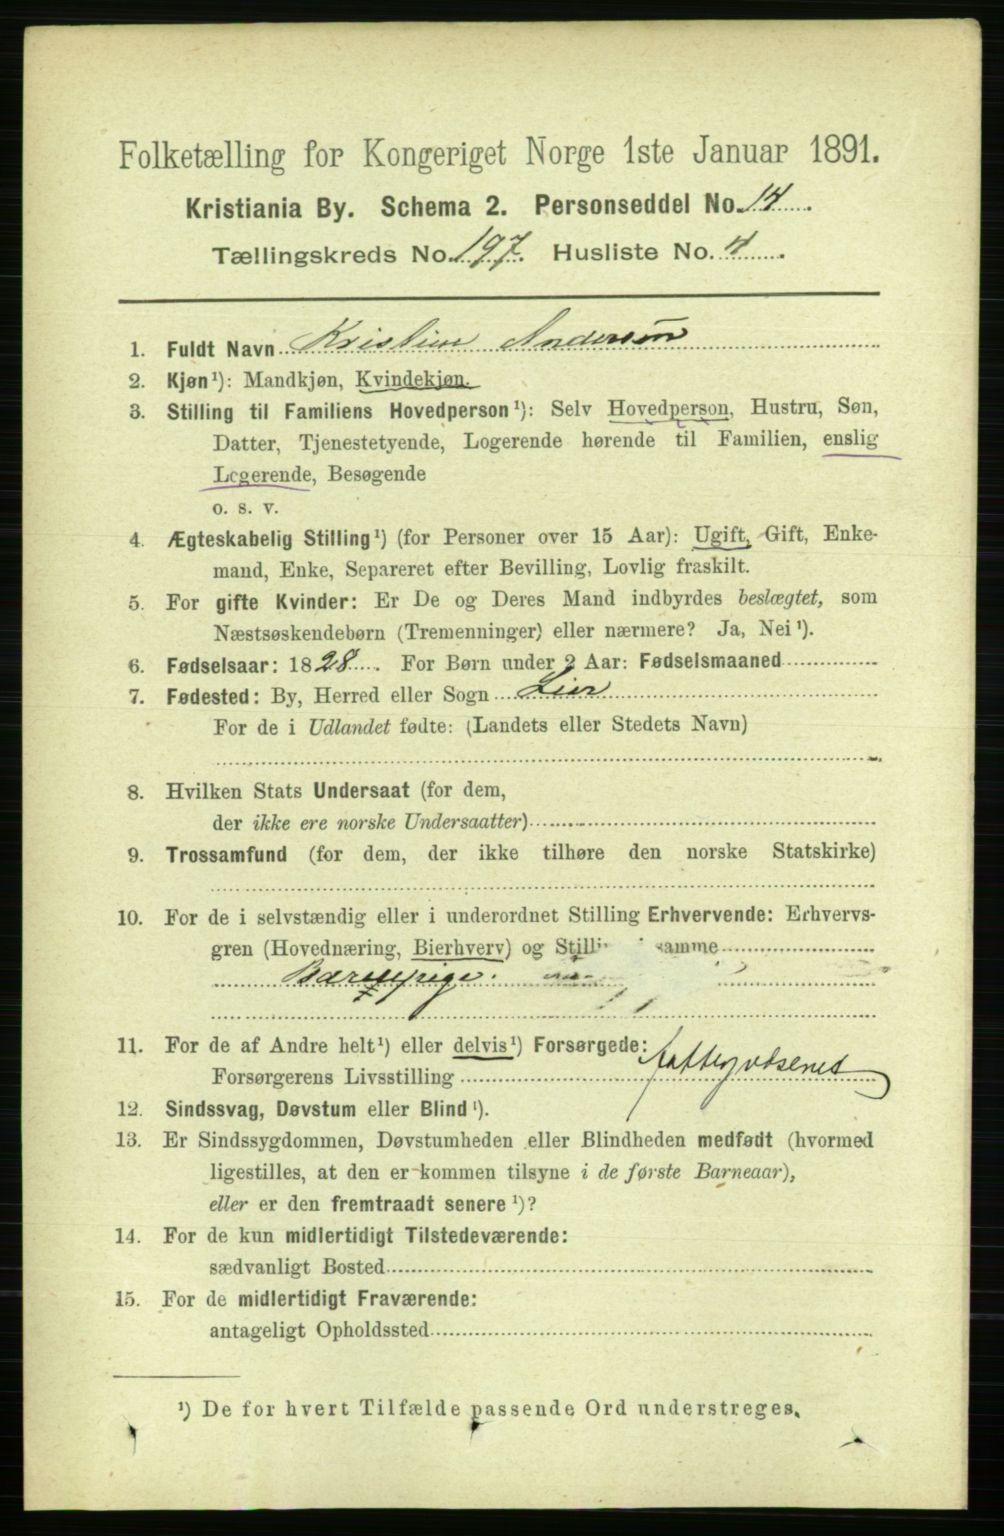 Folketælling for Kongeriget Norge 1ste Januar 1891.
Kristiania By. Schema 2. Personseddel No. 14
Tællingskreds No. 197. Husliste No. 4
1. Fuldt Navn Kristine Andersen
2. Kjøn¹): Mandkjøn, Kvindekjøn.
3. Stilling til Familiens Hovedperson¹): Selv Hovedperson, Hustru, Søn,
Datter, Tjenestetyende, Logerende hørende til Familien, enslig
Logerende, Besøgende
o. s. v.
4. Ægteskabelig Stilling¹) (for Personer over 15 Aar): Ugift, Gift, Enke-
mand, Enke, Separeret efter Bevilling, Lovlig fraskilt.
5. For gifte Kvinder: Er De og Deres Mand indbyrdes beslægtet, som
Næstsøskendebørn (Tremenninger) eller nærmere? Ja, Nei¹).
6. Fødselsaar: 1828. For Børn under 2 Aar: Fødselsmaaned
7. Fødested: By, Herred eller Sogn Lier
For de i Udlandet fødte: (Landets eller Stedets Navn)
8. Hvilken Stats Undersaat (for dem,
der ikke ere norske Undersaatter)
9. Trossamfund (for dem, der ikke tilhøre den norske Statskirke)
10. For de i selvstændig eller i underordnet Stilling Erhvervende: Erhvervs-
gren (Hovednæring, Bierhverv) og Stilli samme
Bærepige.
11. For de af Andre helt¹) eller delvis¹) Forsørgede:
Forsørgerens Livsstilling Fattigvæsenet
12. Sindssvag, Døvstum eller Blind¹).
13. Er Sindssygdommen, Døvstumheden eller Blindheden medfødt (hvormed
ligestilles, at den er kommen tilsyne i de første Barneaar),
eller er den fremtraadt senere¹)?
14. For de kun midlertidigt Tilstedeværende:
sædvanligt Bosted
15. For de midlertidigt Fraværende:
antageligt Opholdssted
¹) De for hvert Tilfælde passende Ord understreges.